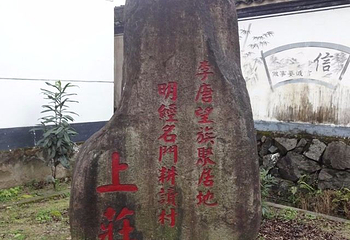 李唐望族聚居地
明經名門耕讀村
上莊
信